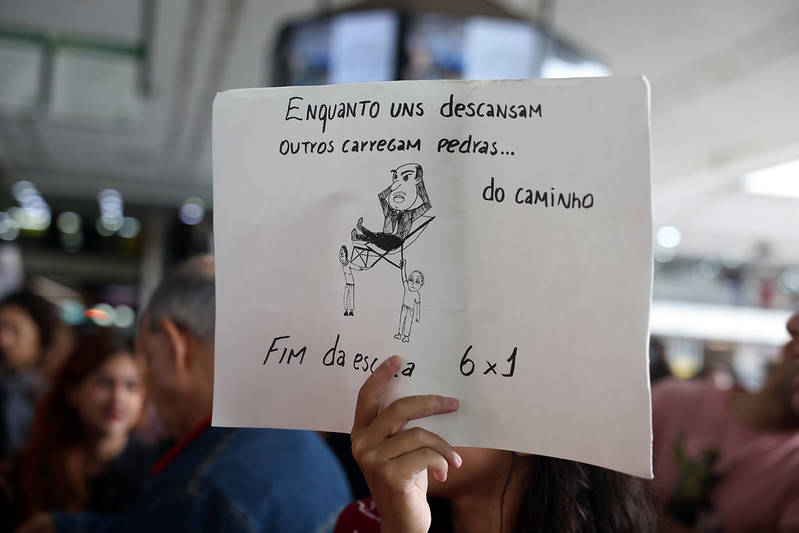 Enquanto uns descansam
outros carregam pedras...
do caminho
Fim da escala 6x1